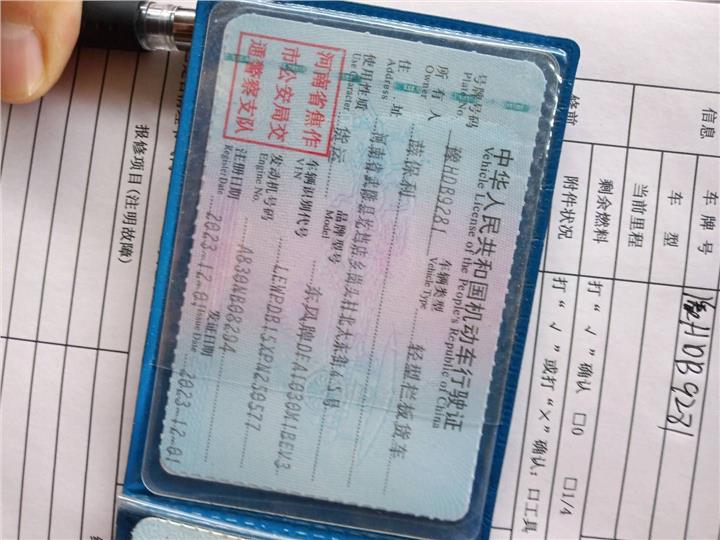 中华人民共和国机动车行驶证
Vehicle License of the People's Republic of China
号牌号码
Plate No.
豫HDB9281
车辆类型
Vehicle Type
轻型栏板货车
所有人
Owner
住址
Address
使用性质
Use Character
货运
品牌型号
Model
东风牌
车辆识别代号
VIN
发动机号码
Engine No.
A830NB08204
注册日期
Register Date
2023-12-01
发证日期
Issue Date
2023-12-01
河南省焦作
市公安局交
通警察支队
信息
车牌号
豫HDB9281
车型
当前里程
修前
剩余燃料
打“√”确认 □0 □1/4
附件状况
打“√”或打“×”确认：□工具
报修项目(注明故障)